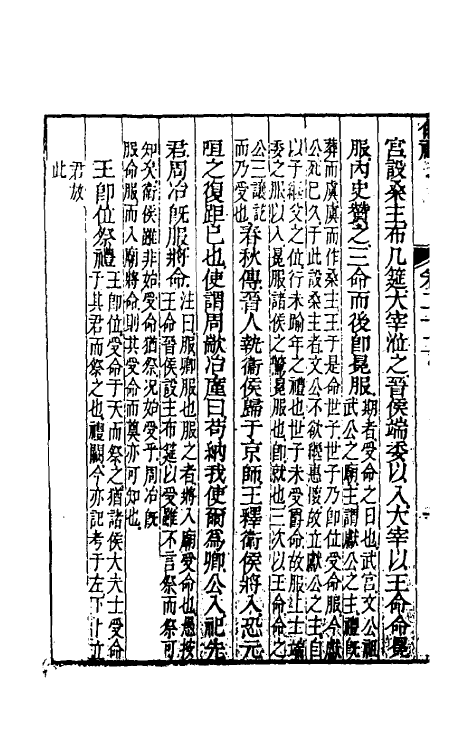 宫設桑主布几筵大宰涖之晉侯端委以入大宰以王命命冕
服內史贊之三命而後即冕服
期者受命之日也武宫文公祖
武公之廟主謂獻公之主禮既
葬而虞虞而作桑主主于是命世子世子乃即位受命服今獻
公死已久于此設桑主者文公不欲繼惠懷故立獻公之主自
以子繼父之位行未踰年之禮也世子未受爵命故服士士端
委之服以入冕服諸侯之鷩冕服也即就也三次以王命命之
公三讓
而乃受也
春秋傳晉人執衞侯歸于京師王釋衞侯將入恐元
咺之復距已也使謂周歂冶廑曰苟納我使爾爲卿公入祀先
君周冶既服將命
注曰服卿服也服之者將入廟受命也愚按
王命晉侯設主布筵以受雖不言祭而祭可
知矣衞侯雖非始受命猶祭況始受乎周冶既
服命服而入廟將命則其受命而奠亦可知也
王即位祭禮
王即位受命于天而祭之猶諸侯大夫士受命
于其君而祭之也禮闕今亦記考于左
君故
此